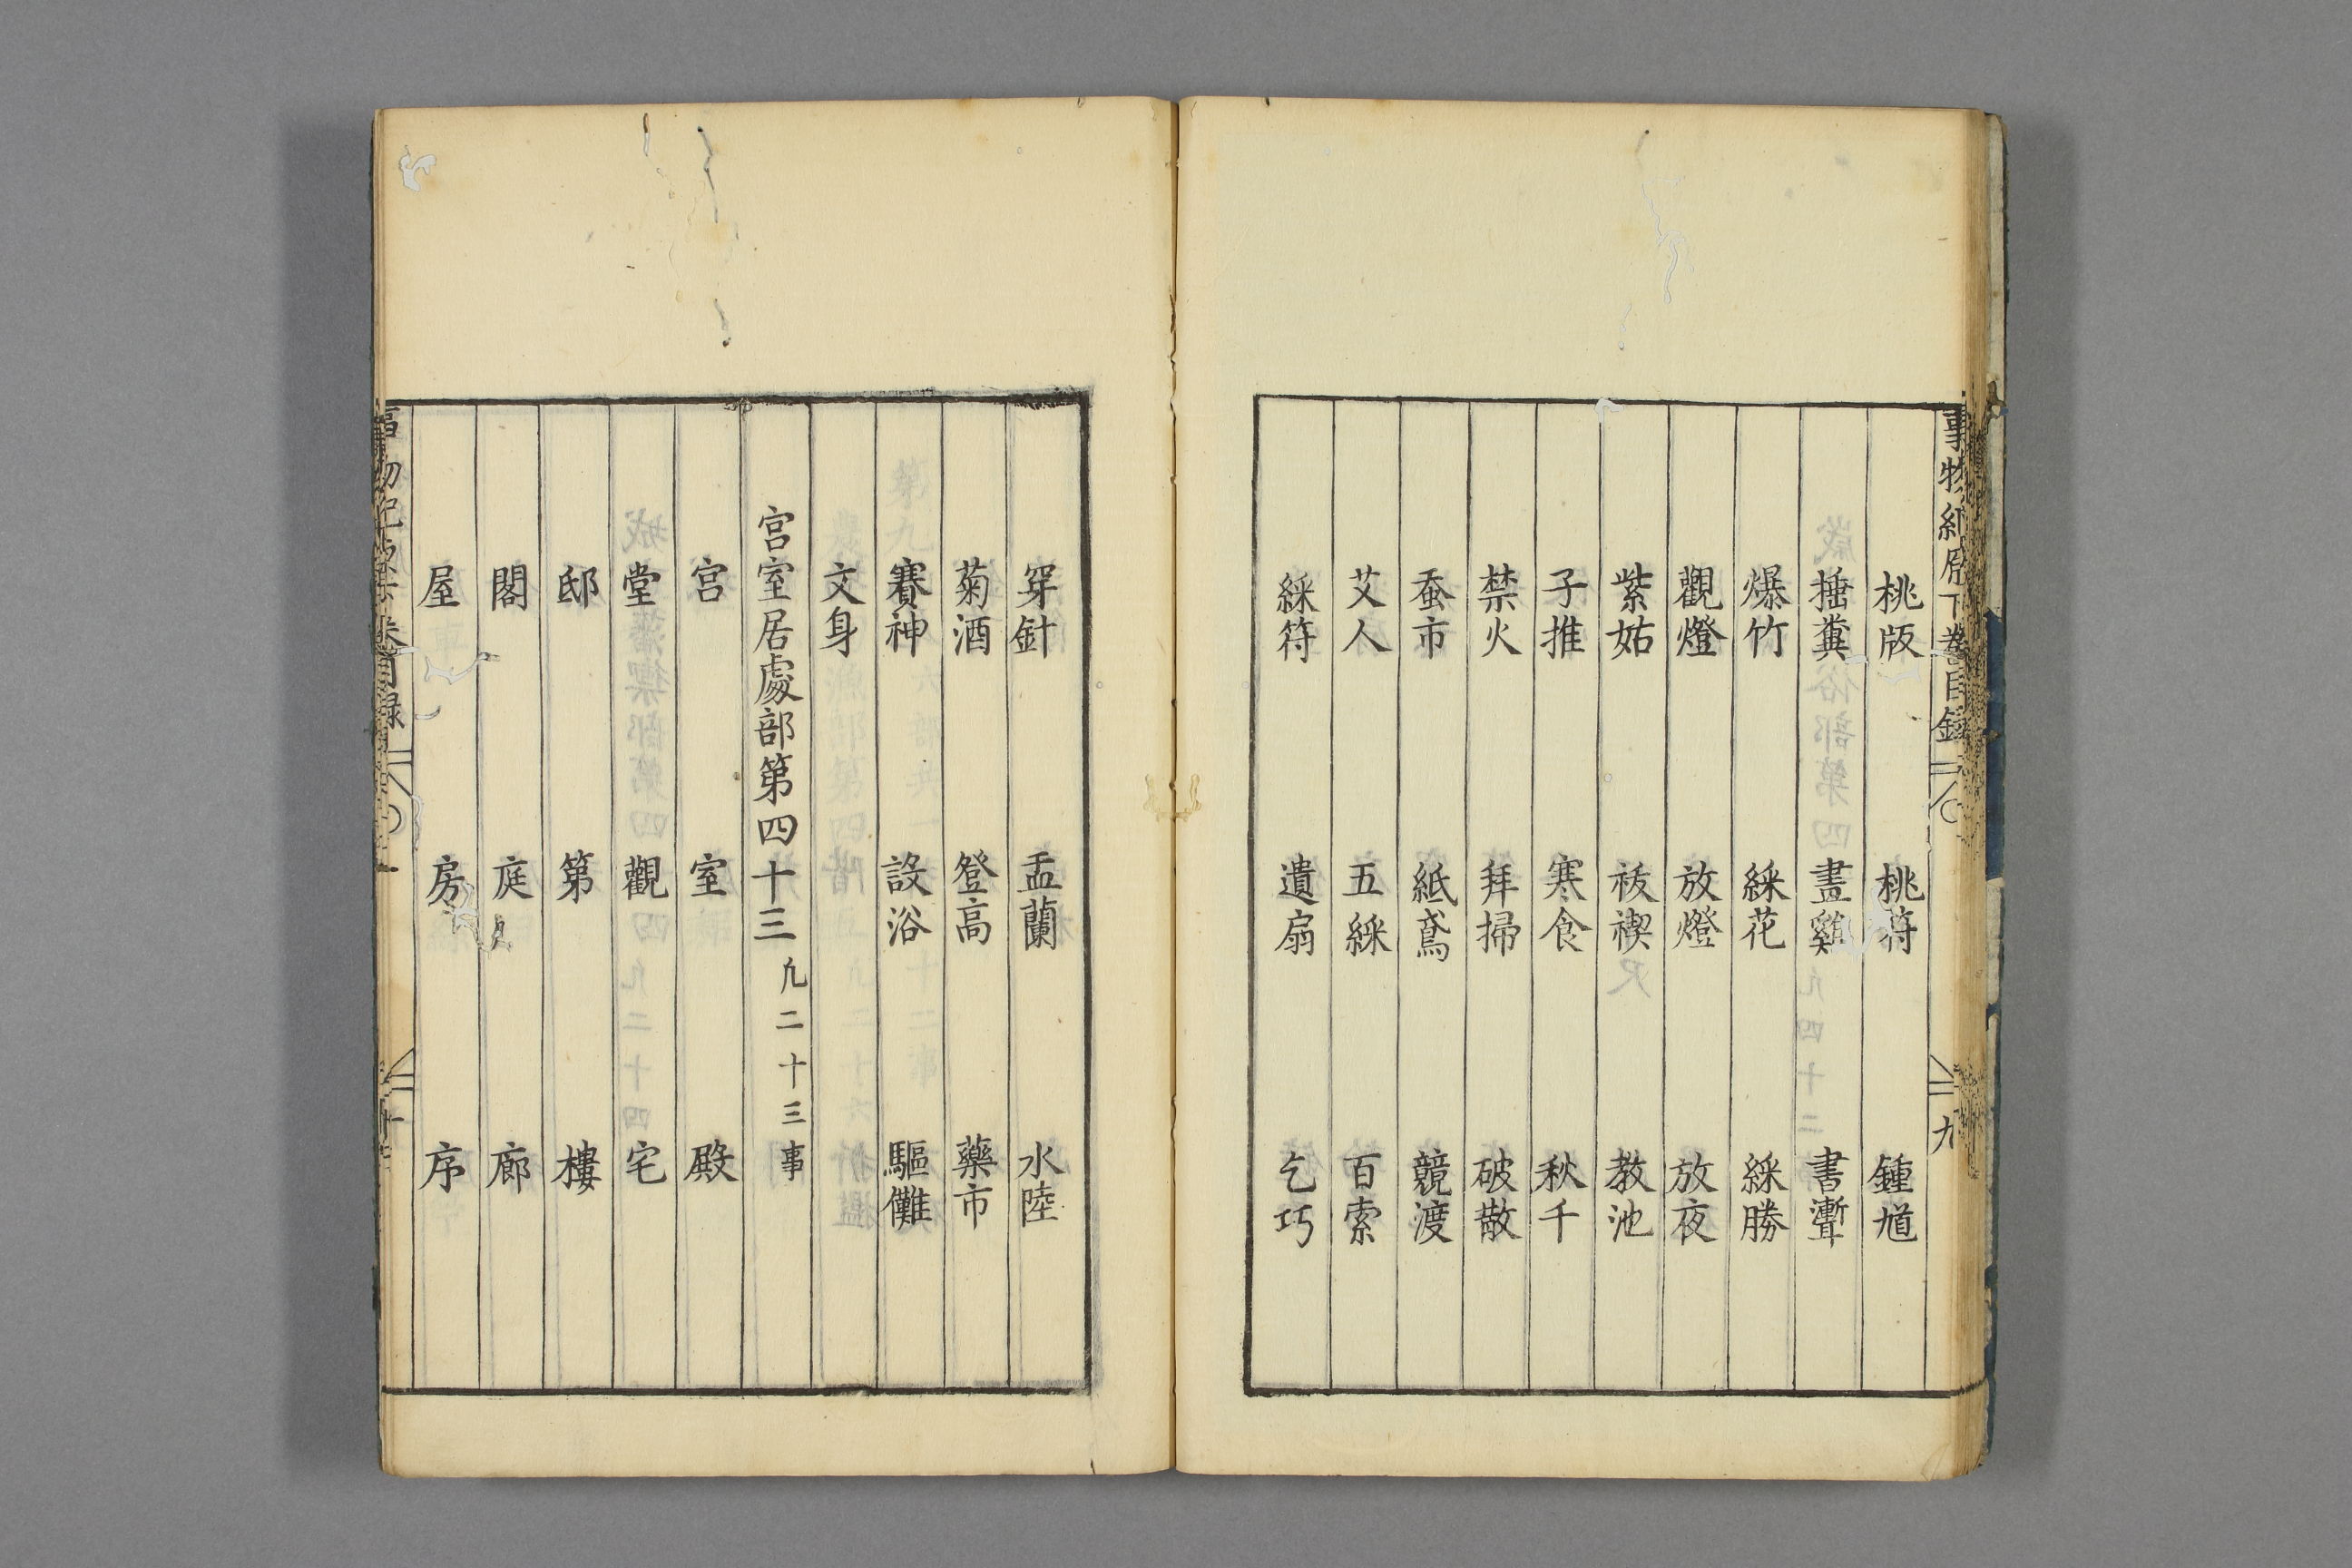 事物紀原下卷目錄
九
桃版 桃符 鍾馗
捶糞 畫雞 書聻
爆竹 綵花 綵勝
觀燈 放燈 放夜
紫姑 祓禊 教池
子推 寒食 秋千
禁火 拜掃 破散
蚕市 紙鳶 競渡
艾人 五綵 百索
綵符 遺扇 乞巧
穿針 盂蘭 水陸
菊酒 登高 藥市
賽神 設浴 驅儺
文身
宮室居處部第四十三 凢二十三事
宮 室 殿
堂 觀 宅
邸 第 樓
閣 庭 廊
屋 房 序